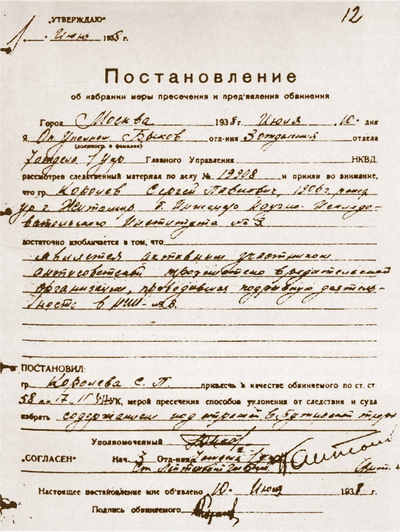 12
„УТВЕРЖДАЮ“
Июня 1938 г.
Постановление
об избрании меры пресечения и предъявления обвинения
Город Москва 1938 г. Июля 10 дня
Я, Оп Уполном. Быков отд-ния 3 отделения отдела
(должность и фамилия)
7 отдела 1 Упр Главного Управления НКВД,
рассмотрев следственный материал по делу № 19908 и приняв во внимание,
что гр. Королев Сергей Павлович, 1906 г. рожд.
ур. г. Житомир, б. Инженер Научно-Исследо-
вательского Института № 3
достаточно изобличается в том, что
является активным участником
антисоветской троцкистско вредительской
организации, проводившей подрывную деятель-
ность в НИИ-3.
ПОСТАНОВИЛ:
гр. Королева С. П. привлечь в качестве обвиняемого по ст. ст.
58 17 11 УК, мерой пресечения способов уклонения от следствия и суда
избрать содержание под стражей в Бутырской тюрьме
Уполномоченный Быков
„СОГЛАСЕН“ Нач. 3 Отд-ния
Ст. Лейтенант
Настоящее постановление мне объявлено 10 Июля 1938 г.
Подпись обвиняемого